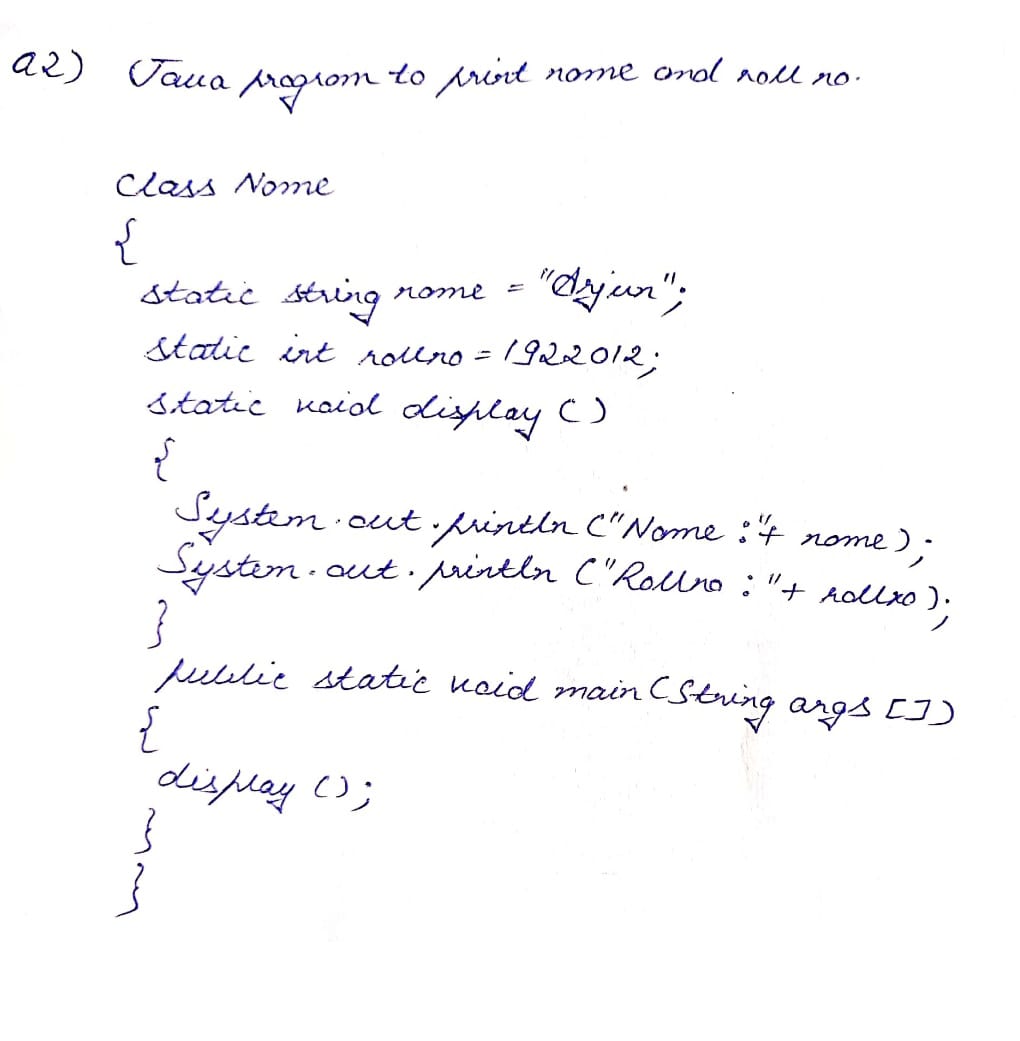 a2) Java program to print name and roll no.
Class Name
{
static string name = "Arjun";
static int rollno = 1922012;
static void display ()
{
System.out.println ("Name :"+ name);
System.out.println ("Rollno : "+ rollno);
}
public static void main (String args [])
{
display ();
}
}